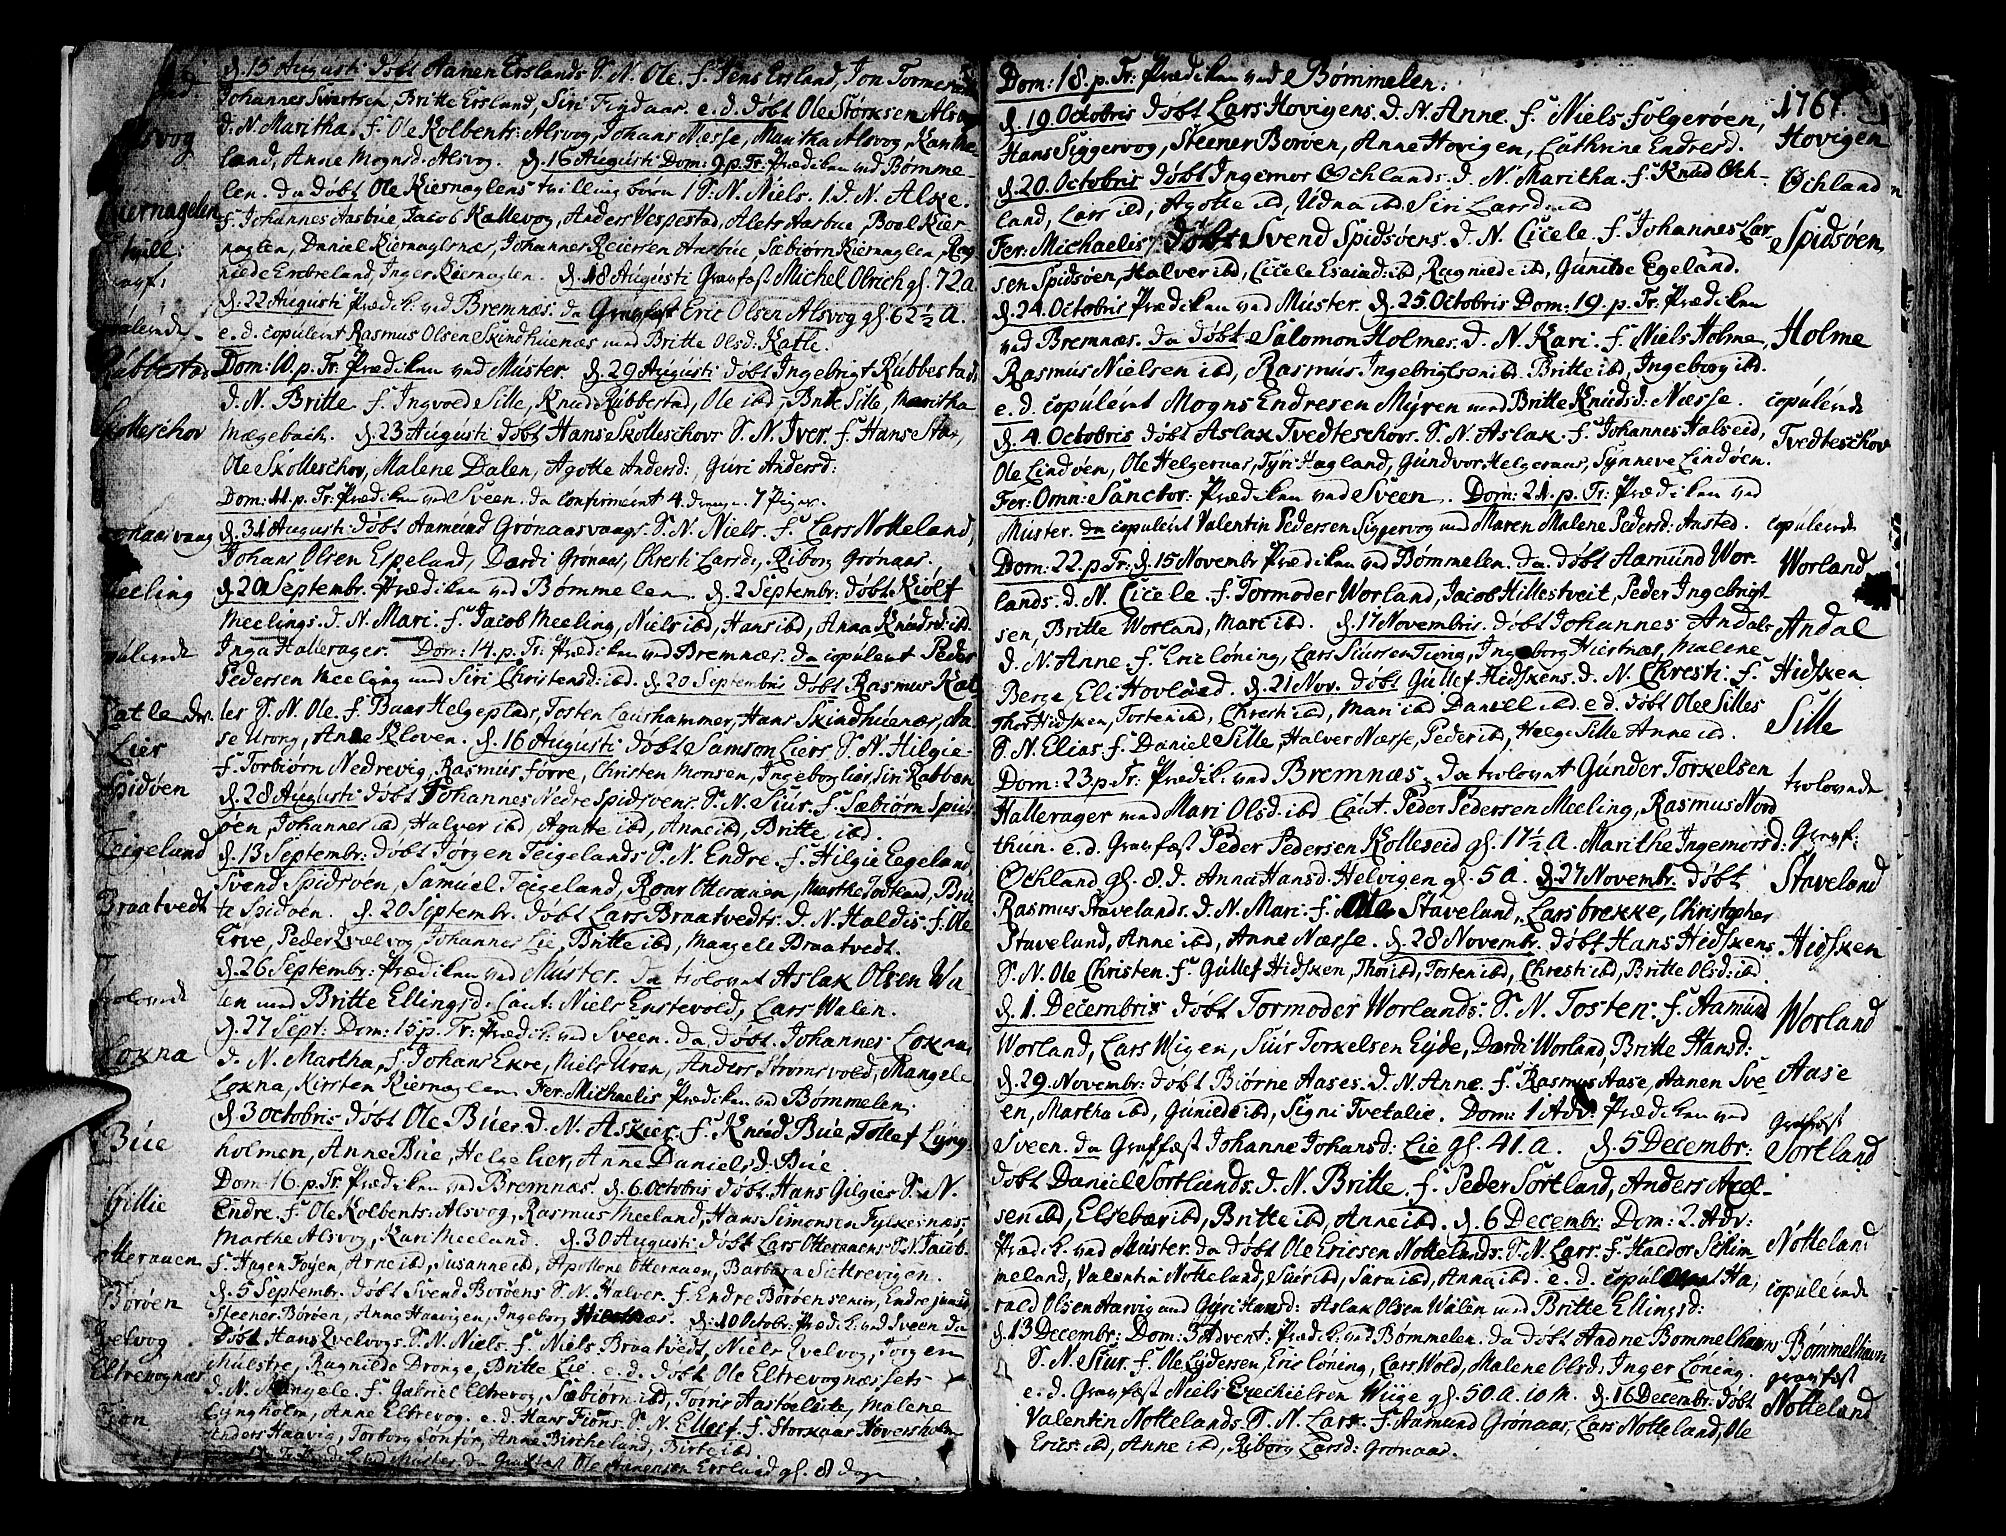 d. 15 Augusti døbt Aanen Erslands S. N. Ole. f. Jens Ersland, Jon
Johannes Britte Ersland, Siri e. d. døbt Ole Størksen
Alsvog
D. N. Maritha. f. Ole Kolbents: Alsvog, Johans Næsse, Maritha Alsvog,
land, Anne Mognsd: Alsvog. d. 16 Augusti Dom: 9 p. Tr: Prædiken ved Bømme-
len. da døbt Ole Kiernaglens tvilling børn 1 S. N. Niels. 1. D. N.
Kiernaglen
f. Johannes Aasbue Jacob Kallevog, Anders Vespestad, Alets Aasbue, Boel Kier-
naglen, Daniel Kiernaglsnæs, Johannes Reiersen Aasbue, Sæbiørn Kiernaglen,
Inger Kiernaglen. d. 18 Augusti Gravfæst Michel Olrich gl. 72 a.
d. 22 Augusti Prædik: ved Bremnæs. da Gravfæst Eric Olsen Alsvog gl. 62 ½ a.
e. d. copulent Rasmus Olsen Skindhuenæs med Britte Olsd: Katle.
Rubbestad
Dom: 10. p. Tr. Prædiken ved Muster. d. 29 Augusti døbt Ingebrigt Rubbestads
D. N. Britte f. Ingvoed Sille, Knud Rubbestad, Ole ibd, Britte Sille, Maritha
Skolleschov
Mægebach. d. 23 Augusti døbt Hans Skolleschovs S. N. Iver. f. Hans
Ole Skolleschov, Malene Dalen, Agotte Andersd: Guri Andersd:
Dom: 11. p. Tr: Prædiken ved Sveen. da confirmert 4 drenge. 7 Piger.
d. 31 Augusti døbt Aamund Grønaasvaags S. N. Niels. f. Lars Notteland,
Johans Olsen Espeland, Dardi Grønaas, Chresti Larsd: Riborg Grønaas.
Meeling
d. 20 Septembr: Prædiken ved Bømmelen. d. 2 Septembr: døbt
Meelings. D. N. Mari. f. Jacob Meeling, Niels ibd, Hans ibd, Anna Knudsd: ibd.
Inga Hallerager. Dom: 14. p. Tr: Prædiken ved Bremnæs. da copulent Peder
Pedersen Meeling med Siri Christensd: ibd. d. 20 Septembris døbt Rasmus Kat-
Katle
les S. N. Ole. f. Baar Helgeplads, Tosten Laurhammer, Hans Skindhuenæs,
Lier
se Urong, Anne Kloven. d. 16 Augusti døbt Samson Liers S. N. Hilgie.
f. Torbiørn Nedrevig, Rasmus Førre, Christen Monsen, Ingeborg Lier, Siri
Spidøen
d. 28 Augusti døbt Johannes Nedre Spidsøens S. N. Siur. f. Sæbiørn Spids-
øen, Johannes ibd, Halver ibd, Agatte ibd, Anne ibd, Britte ibd.
Teigeland
d. 13 Septembr: døbt Jørgen Teigelands S. N. Endre. f. Hilgie Eegeland,
Svend Spidsøen, Samuel Teigeland, Roar Otteraaen, Marthe Todland, Brit-
te Spidøen. d. 20 Septembr: døbt Lars Braatvedts. D. N. Haldis. f. Ole
Braatvedt
Erve, Peder Qvelvog, Johannes Lie, Britte ibd, Mangele Braatvedt.
d. 26 Septembr: Prædiken ved Muster. da trolovet Aslak Olsen Wa-
trolovede
len med Britte Ellingsd: Caut. Niels Enstevold, Lars Walen.
d. 27 Sept: Dom: 15 p. Tr: Prædik: ved Sveen. da døbt Johannes Loknas
Lokna
D. N. Martha, f. Johans Ekre, Niels Uran, Anders Strømsvold, Mangele
Lokna, Kirsten Kiernaglen. Fer: Michaelis Prædiken ved Bømmelen.
d. 3 Octobris døbt Ole Buer. D. N. Askier. f. Knud Bue, Tollef Lyng-
Bue
holmen, Anne Bue, Helge Lier, Anne Daniels D. Bue.
Dom: 16. p. Tr Prædiken ved Bremnæs. d. 6 Octobris døbt Hans Gilgies S. N.
Gillie
Endre. f. Ole Kolbents. Alsvog, Rasmus Meeland, Hans Simonsen Fylkesnæs.
Marthe Alsvog, Kari Meeland. d. 30 Augusti døbt Lars Otteraaens S. N. Jacob.
Otteraaen
f. Hagen Føyen, Arne ibd, Susanne ibd, Apollone Otteraaen, Barbara Sættrevigen.
d. 5 Septembr: døbt Svend Børøens S. N. Halver. f. Endre Børøen senior, Endre
Børøen
Steener Børøen, Anne Haavigen, Ingeborg d. 10 Octobr: Prædik: ved Sveen da
Qvelvog
døbt Hans Qvelvogs. S. N. Niels. f. Niels Braatvedt, Niels Qvelvog, Jørgen
Mulstre, Ragnilde Drønge, Britte Lie e. d. døbt Ole Eltrevognæssets
Eltrevognæs
D. N. Mangele. f. Gabriel Eltrevog, Sæbiørn ibd, Malene
Lyngholm, Anne Eltrevog. e. d. Hans Fions S. N. f. Storkaar Hoversholm
Fion
Anders Haavig, Anne Bircheland, Birte ibd
Ole Aanensen Ersland gl. 8 dage
Dom: 18. p. Tr. Prædiken ved Bømmelen:
1767.
d. 19 Octobris døbt Lars Hovigens. D. N. Anne. f. Niels Folgerøen,
Hovigen
Hans Siggervog, Steener Børøen, Anne Hovigen, Cathrine Endresd.
d. 20. Octobris døbt Ingemor Øchlands. D. N. Maritha. f. Knud Øch-
Øchland
land, Lars ibd, Agotte ibd, Udna ibd Siri Larsd: ibd
Fer: Michaelis døbt Svend Spidsøens. D. N. Cicele. f. Johannes Lar-
Spidsøen
sen Spidsøen, Halver ibd, Cicele Esaiad: ibd, Ragniede ibd, Gunilde Egeland.
d. 24. Octobris Prædiken ved Muster. d. 25 Octobris Dom: 19. p. Tr. Prædiken
ved Bremnæs. da døbt Salomon Holmes. D. N. Kari. f. Niels Holme,
Holme
Rasmus Nielsen ibd, Rasmus Ingebrigtsen ibd. Britte ibd, Ingeborg ibd.
e. d. copulent Mogns Endresen Myren med Britte Knudsd: Næsse.
copulerede
d. 4. Octobris døbt Aslak Tvedteschovs. S. N. Aslak. f. Johannes Halseid,
Tvedteschov
Ole Lindøen, Ole Helgernæs, Tyri Hagland, Gundvor Helgernæs, Synneve Lindøen.
Fer: Omn: Sanctor: Prædiken ved Sveen. Dom: 21. p. Tr: Prædiken ved
Muster. da copulent Valentin Pedersen Siggervog med Maren Malene Pedersd: Ansted.
copulerede
Dom: 22. p Tr: d. 15 Novembr Prædiken ved Bømmelen. da døbt Aamund Wor-
Worland
lands. D. N. Cicele. f. Tormoder Worland, Jacob Hillestveit, Peder Ingebrigt
sen, Britte Worland, Mari ibd. d. 17 Novembris. døbt Johannes Andals
Andal
D. N. Anne. f. Eric Løning, Lars Siursen Tiong, Ingeborg Hiertnæs, Malene
Berge Eli Hovland. d. 21 Nov. døbt Gullef Hidskens. D. N. Chresti. f.
Hidsken
Thor Hidsken, Tosten ibd, Chresti ibd, Mari ibd Daniel ibd. e. d. døbt Ole Silles
Sille
S. N. Elias. f. Daniel Sille, Halver Næsse, Peder ibd, Helge Sille Anne ibd.
Dom: 23 p Tr: Prædik: ved Bremnæs. da trolovet Gunder Torkelsen
trolovede
Hallerager med Mari Olsd: ibd Caut. Peder Pedersen Meeling, Rasmus Nord
thun. e. d. Gravfæst Peder Pedersen Kolleseid gl. 17 ½ a. Marithe Ingemorsd:
Gravf:
Øchland gl. 8. d. Anna Hansd: Helvigen gl. 5 a. d. 27 Novembr. døbt
Staveland
Rasmus Stavelands. D. N. Mari. f. Ole Staveland, Lars brekke, Christopher
Staveland, Anne ibd, Anne Næsse. d. 28 Novembr. døbt Hans Hidskens
Hidsken
S. N. Ole Christen. f. Gullef Hidsken, Thor ibd, Tosten ibd, Chresti ibd, Britte Olsd: ibd
d. 1. Decembris døbt Tormoder Worlands. S. N. Tosten. f. Aamund
Worland
Worland, Lars Wigen, Siur Torkelsen Eyde, Dardi Worland, Britte Hansd:
d. 29. Novembr: døbt Biørne Aases. D. N. Anne. f. Rasmus Aase, Aanen Sve-
Aase
en, Martha ibd, Guniede ibd, Signi Tvetalie. Dom: 1 Adv: Prædiken ved
Gravfæst
Sveen. da Gravfæst Johanne Johansd: Lie gl. 41. a. d. 5 Decembr:
Sortland
døbt Daniel Sortlands. D. N. Britte. f. Peder Sortland, Anders Axel-
sen ibd, Elsebær ibd, Britte ibd, Anne ibd. d. 6 Decembr: Dom: 2. Adv:
Prædik: ved Muster. da døbt Ole Ericsen Nottelands. S. N. Lars. f. Haldor Schim-
Notteland
meland, Valentin Notteland, Siur ibd, Sara ibd, Anna ibd. e. d. copulent Ha,
copulerede
rald Olsen Haavig med Gyri Hansd: Aslak Olsen Walen med Britte Ellingsd:
d. 13 Decembr: Dom: 3 Advent: Prædik: ved Bømmelen. da døbt Aadne Bommelhavns
Bømmelhavn
S. N. Siur. f. Ole Lydersen, Eric Løning, Lars Wold, Malene Olsd: Inger Løning.
gravfæst
e. d. Gravfæst Niels Ezechielsen Wiige gl. 50. a. 10 M. d. 16 Decembr: døbt
Notteland
Valentin Nottelands. S. N. Lars. f. Aamund Grønaas, Lars Notteland, Ole
Erics: ibd, Anne ibd, Riborg Larsd: Grønaas.